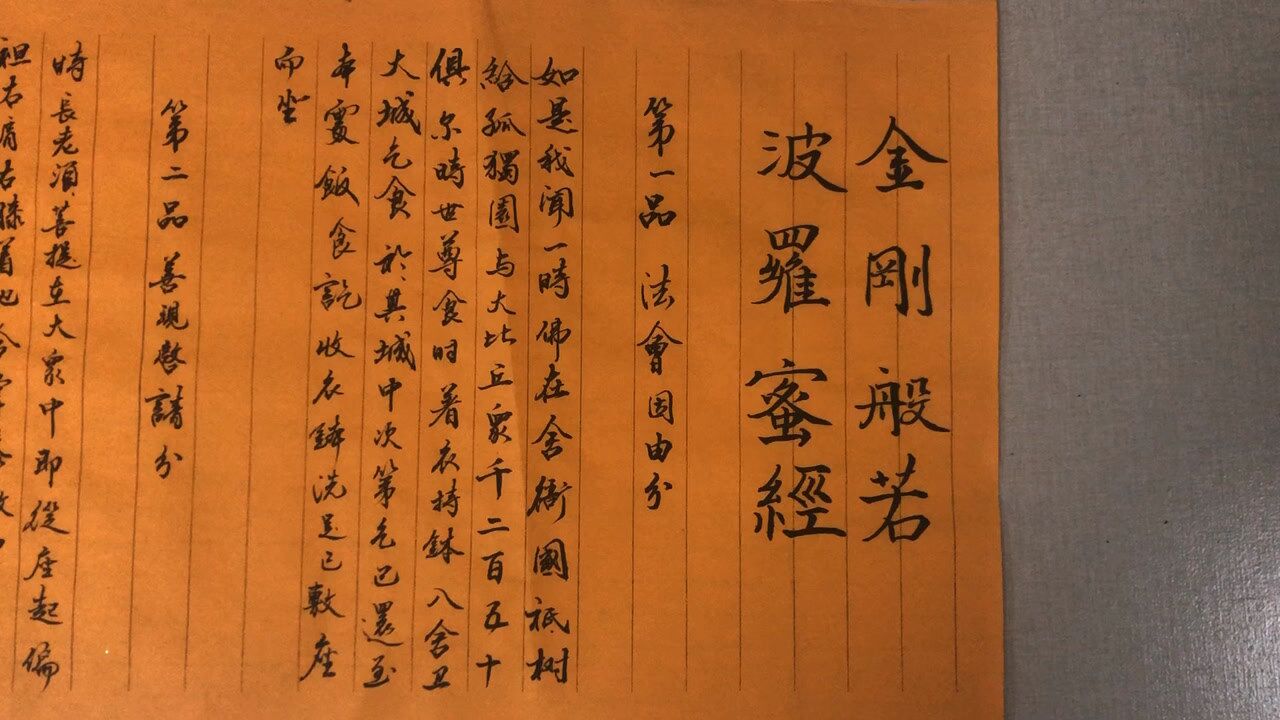 金剛般若
波羅蜜經
第一品 法會因由分
如是我聞一時佛在舍衛國祇树
給孤獨園与大比丘眾千二百五十
俱尔時世尊食时着衣持鉢入舍卫
大城乞食於其城中次第乞已還至
本處飯食訖收衣鉢洗足已敷座
而坐
第二品 善現啓請分
時長老須菩提在大眾中即從座起偏
袒右肩右膝着地合